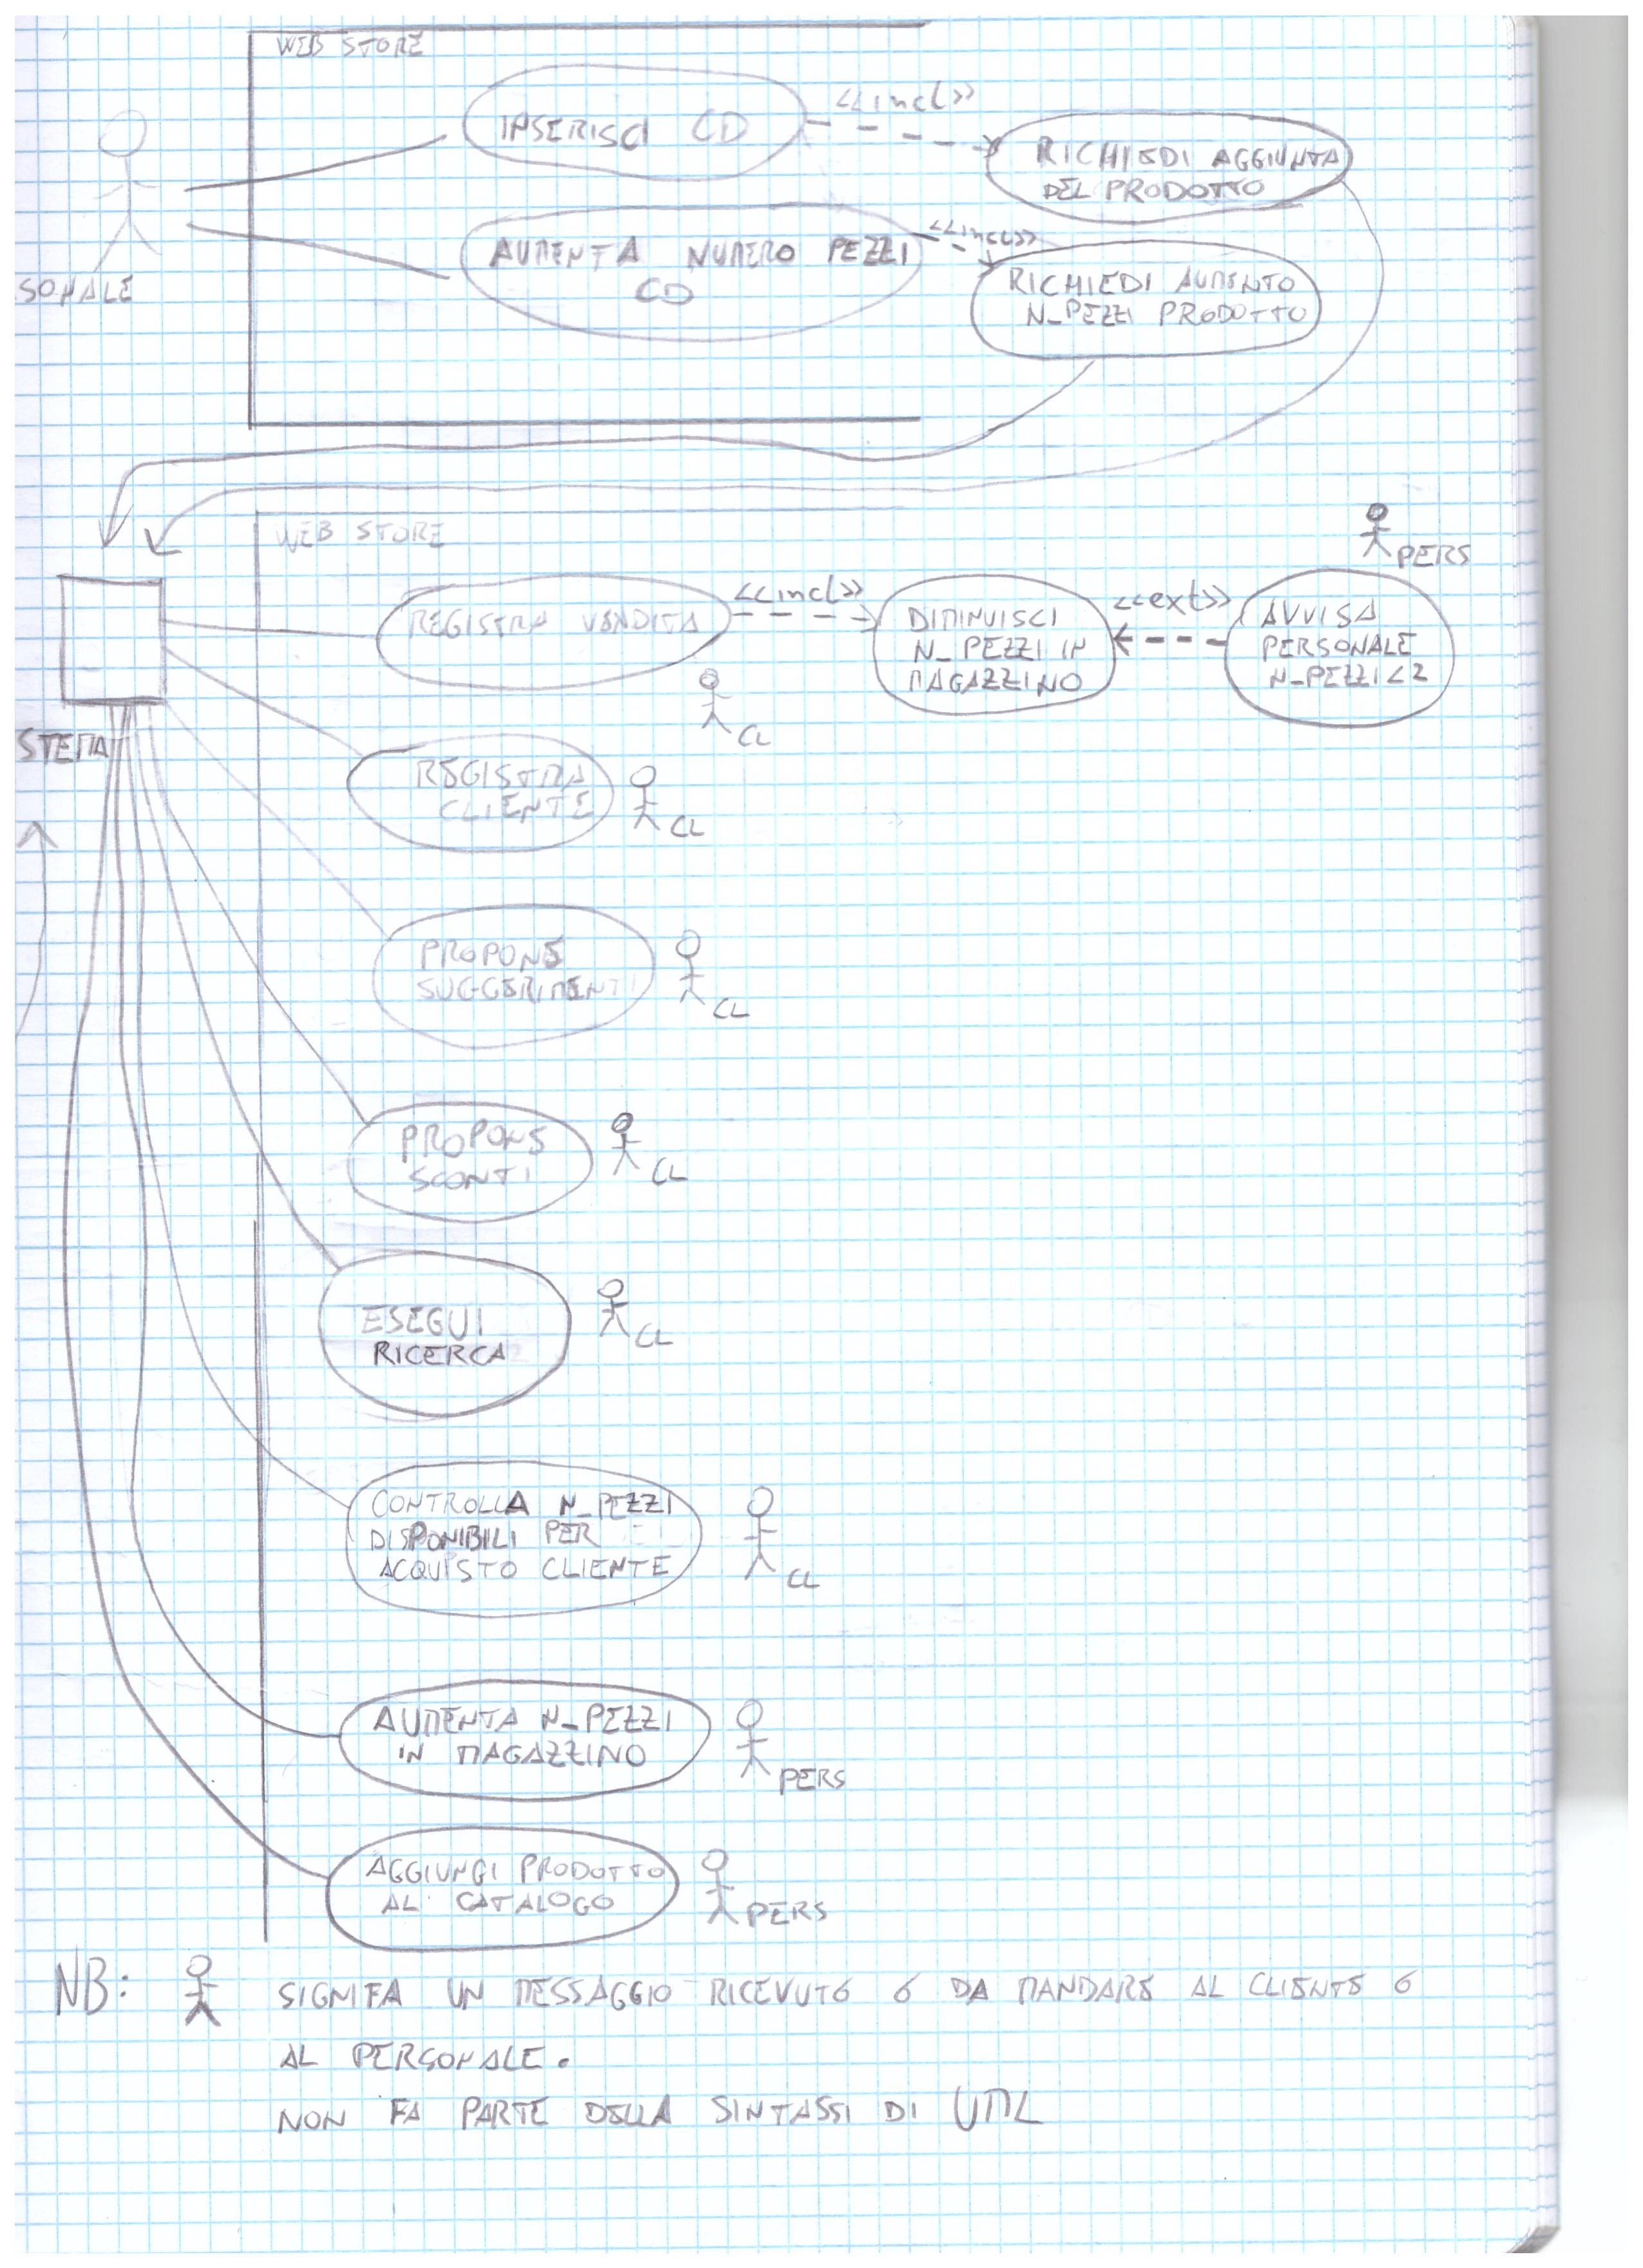 WEB STORE
INSERISCI CD
<<incl>>
RICHIEDI AGGIUNTA
DEL PRODOTTO
AUMENTA NUMERO PEZZI
CD
<<incl>>
RICHIEDI AUMENTO
N_PEZZI PRODOTTO
SONALE
WEB STORE
PERS
REGISTRA VENDITA
<<incl>>
DIMINUISCI
N_PEZZI IN
MAGAZZINO
<<ext>>
AVVISA
PERSONALE
N_PEZZI<2
CL
STEMA
REGISTRA
CLIENTE
CL
PROPONE
SUGGERIMENTI
CL
PROPONE
SCONTI
CL
ESEGUI
RICERCA
CL
CONTROLLA N_PEZZI
DISPONIBILI PER
ACQUISTO CLIENTE
CL
AUMENTA N_PEZZI
IN MAGAZZINO
PERS
AGGIUNGI PRODOTTO
AL CATALOGO
PERS
NB: SIGNIFA UN MESSAGGIO RICEVUTO O DA MANDARE AL CLIENTE O
AL PERSONALE.
NON FA PARTE DELLA SINTASSI DI UML